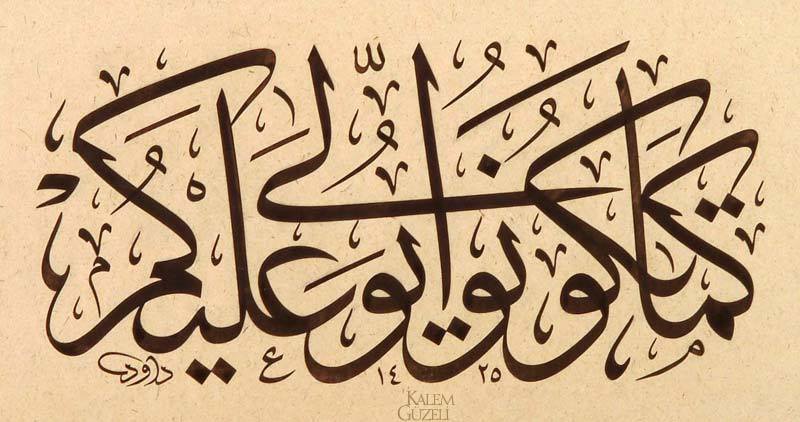 كما تكونوا يولى عليكم
داود ١٤٢٥
KALEM
GÜZELİ